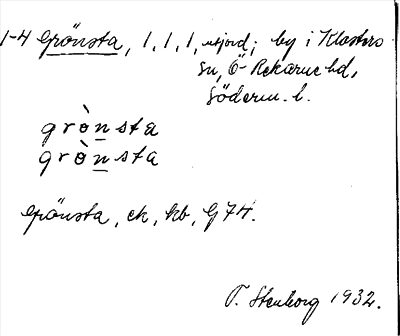 1-4 Grönsta, 1, 1, 1, utjord; by i Klosters
sn, Ö-Rekarne hd,
Söderm. l.
grònsta
grònsta
Grönsta, ek, kb, G 74.
T. Stenborg 1932.